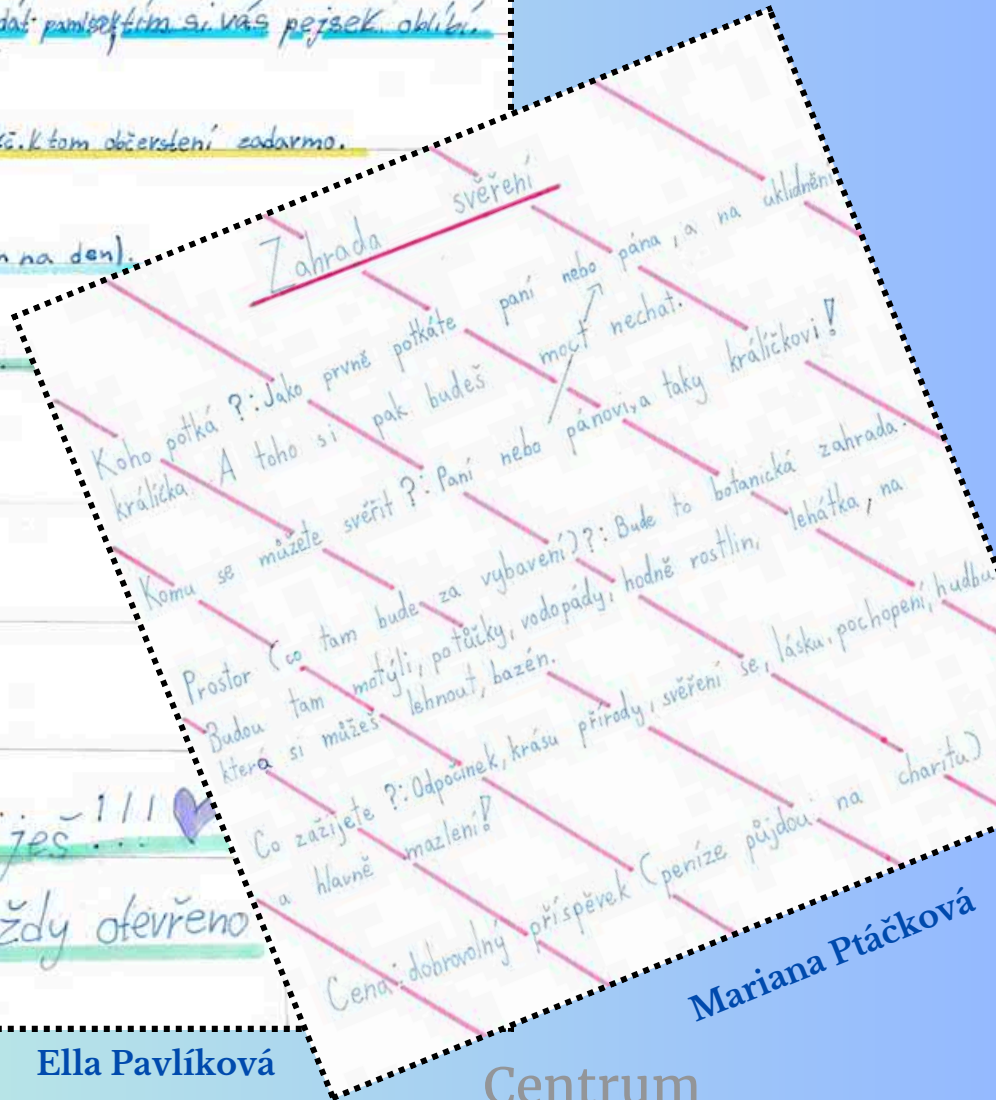 dát pamlsek, tím si vás pejsek oblíbí.
č. K tom občerstení zadarmo.
na den).
ješ ...
ždy otevřeno
Ella Pavlíková
Zahrada svěření
Koho potká ?: Jako prvně potkáte paní nebo pána, a na uklidnění
králíčka. A toho si pak budeš moct nechat.
Komu se můžete svěřit ?: Paní nebo pánovi, a taky králíčkovi!
Prostor (co tam bude za vybavení)?: Bude to botanická zahrada.
Budou tam motýli, potůčky, vodopády, hodně rostlin, lehátka, na
která si můžeš lehnout, bazén.
Co zažijete ?: Odpočinek, krásu přírody, svěření se, lásku, pochopení, hudbu
a hlavně mazlení!
Cena: dobrovolný příspěvek (peníze půjdou na charitu)
Mariana Ptáčková
Centrum